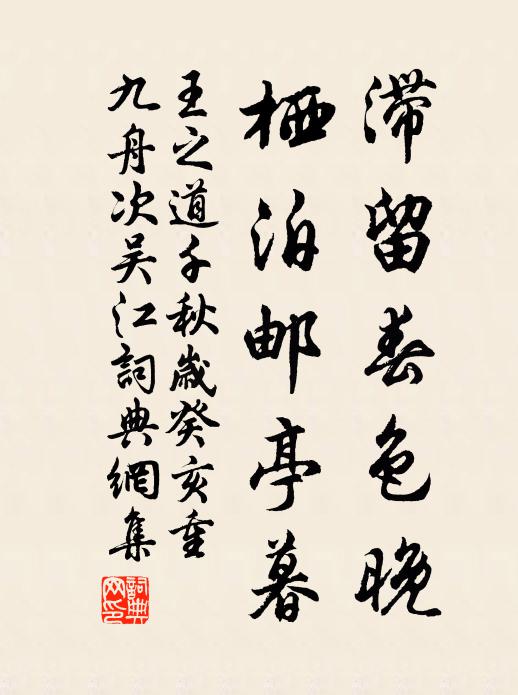 滞留春色晚
栖泊邮亭暮
王之道千秋歲癸亥重
九舟次吴江詞典網集
詞典網印